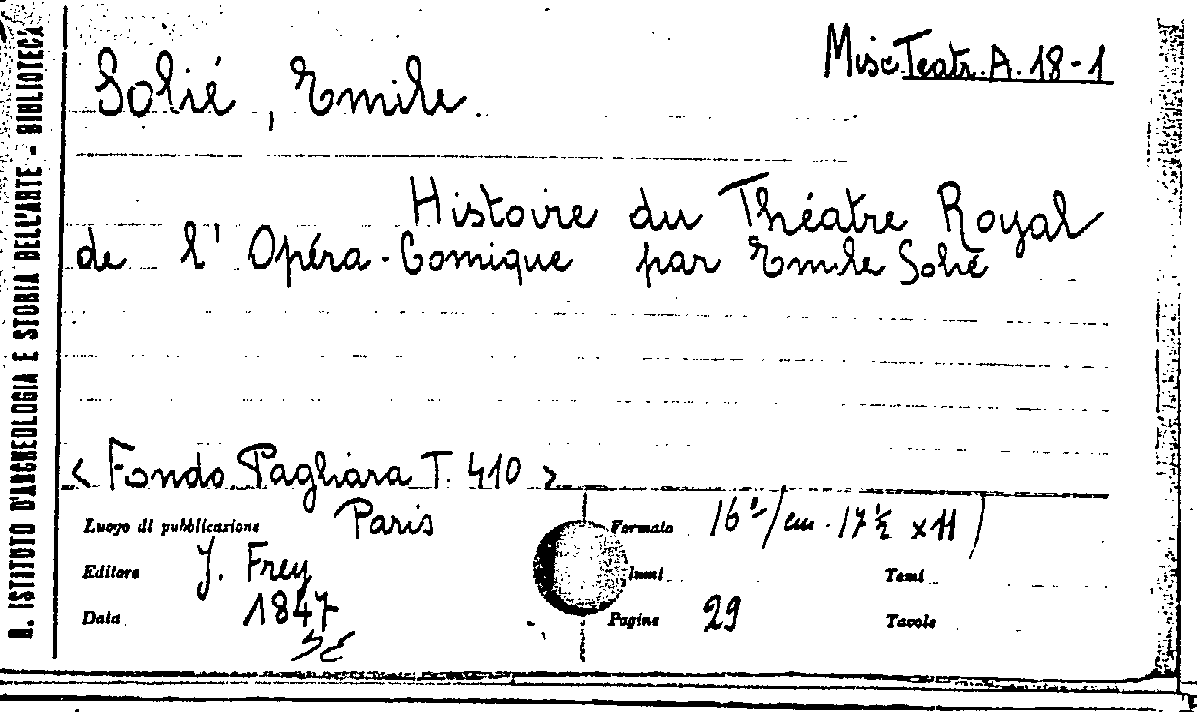 Misc. Teatr. A. 18-1
Solié, Emile.
Histoire du Théatre Royal
de l'Opéra-Comique par Emile Solié
< Fondo Pagliara T. 410 >
Luogo di pubblicazione Paris
Formato 16°/cm. 17½ x 11)
Editore J. Frey
Tomi
Data 1847
Pagine 29
Tavole
R. ISTITUTO D'ARCHEOLOGIA E STORIA DELL'ARTE - BIBLIOTECA